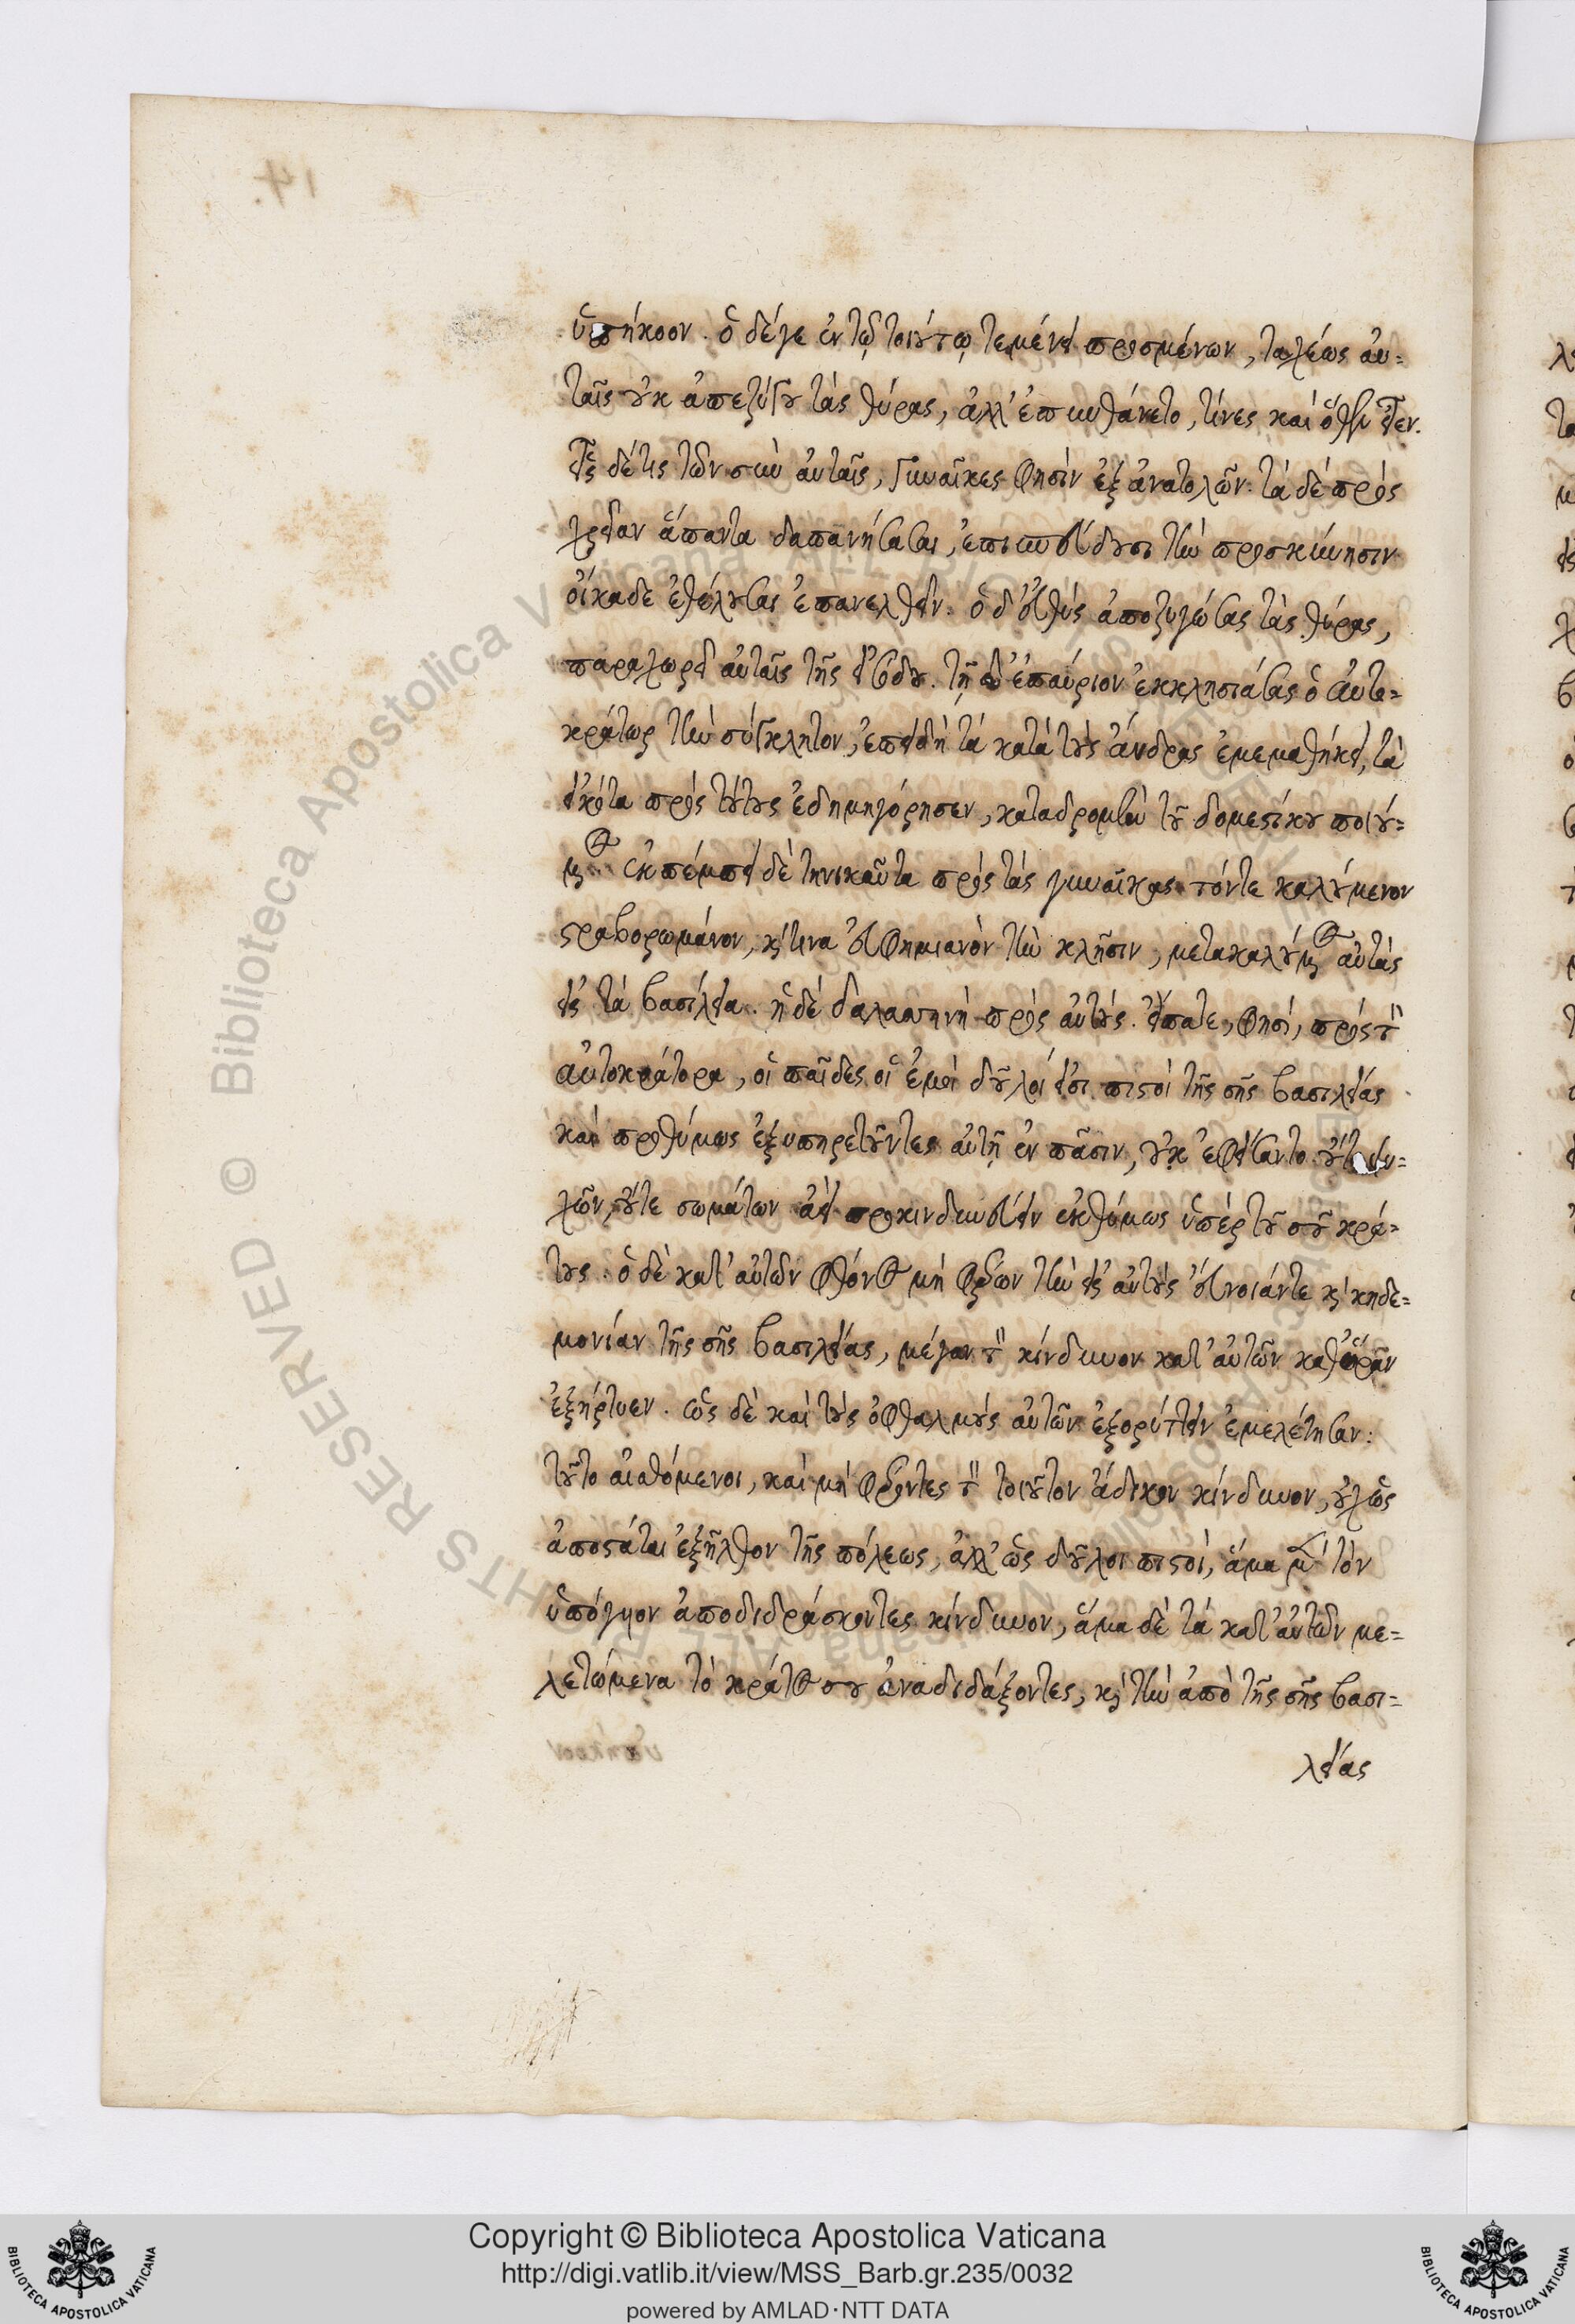 ὑπήκοον. ὁ δέγε ἐν τῷ τοιούτῳ τεμένει προσμένων, ταχέως αὐ=
ταῖς οὐκ ἀπεζύγου τὰς θύρας, ἀλλ' ἐπυνθάνετο, τίνες καὶ ὅθεν εἶεν.
εἷς δέ τις τῶν σὺν αὐταῖς, γυναῖκες φησὶν ἐξ ἀνατολῶν. τὰ δὲ πρὸς
χρείαν ἅπαντα δαπανήσασαι, ἐπισπεύδουσι τὴν προσκύνησιν
οἴκαδε ἐθέλουσαι ἐπανελθεῖν. ὁ δ' εὐθὺς ἀποζυγώσας τὰς θύρας,
παραχωρεῖ αὐταῖς τῆς εἰσόδου. τῇ δ' ἐπαύριον ἐκκλησιάσας ὁ αὐτο=
κράτωρ τὴν σύγκλητον, ἐπειδὴ τὰ κατὰ τοὺς ἄνδρας ἐμεμαθήκει, τὰ
εἰκότα πρὸς τούτους ἐδημηγόρησεν, καταδρομὴν τοῦ δομεστίκου ποιού=
μενος. ἐκπέμπει δὲ τηνικαῦτα πρὸς τὰς γυναῖκας τόντε καλούμενον
στραβορωμάνον, καί τινα εὐφημιανὸν τὴν κλῆσιν, μετακαλούμενος αὐτὰς
εἰς τὰ βασίλεια. ἡ δὲ δαλασσηνὴ πρὸς αὐτούς. εἴπατε, φησί, πρὸς τὸν
αὐτοκράτορα, οἱ παῖδες οἱ ἐμοὶ δοῦλοί εἰσι πιστοὶ τῆς σῆς βασιλείας
καὶ προθύμως ἐξυπηρετοῦντες αὐτῇ ἐν πᾶσιν, οὐκ ἐφείσαντο οὔτε ψυ=
χῶν, οὔτε σωμάτων ἀεὶ προκινδυνεύειν ἐκθύμως ὑπὲρ τοῦ σοῦ κρά=
τους. ὁ δὲ κατ' αὐτῶν φθόνος μὴ φέρων τὴν εἰς αὐτοὺς εὔνοιάντε καὶ κηδε=
μονίαν τῆς σῆς βασιλείας, μέγαν τὸν κίνδυνον κατ' αὐτῶν καθ' ὥραν
ἐξήρτυεν. ὡς δὲ καὶ τοὺς ὀφθαλμοὺς αὐτῶν ἐξορύττειν ἐμελέτησαν.
τοῦτο αἰσθόμενοι, καὶ μὴ φέροντες τὸν τοιοῦτον ἄδικον κίνδυνον, οὐχ ὡς
ἀποστάται ἐξῆλθον τῆς πόλεως, ἀλλ' ὡς δοῦλοι πιστοί, ἅμα μὲν τὸν
ὑπόγυον ἀποδιδράσκοντες κίνδυνον, ἅμα δὲ τὰ κατ' αὐτῶν με=
λετώμενα τὸ κράτος σου ἀναδιδάξοντες, καὶ τὴν ἀπὸ τῆς σῆς βασι=
λείας
Copyright © Biblioteca Apostolica Vaticana
http://digi.vatlib.it/view/MSS_Barb.gr.235/0032
powered by AMLAD·NTT DATA